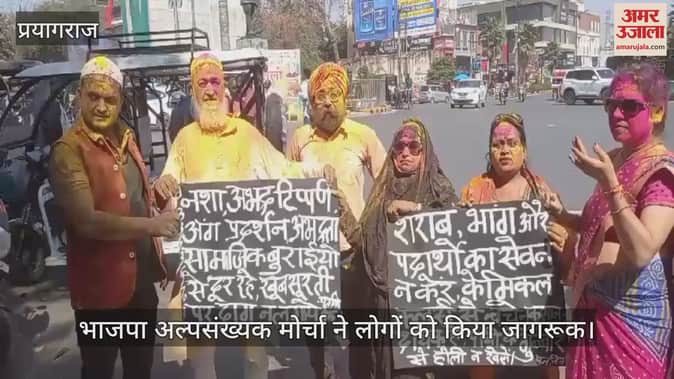 प्रयागराज
अमर उजाला
amarujala.com
नशा, अभद्र टिप्पणी
अंग प्रदर्शन, अभद्रता
सामाजिक बुराईयो
से दूर रहें, खूबसूरती
पर दाग न
शराब, भांग और
पदार्थो का सेवन
न करें, केमिकल
से होली न खेलें।
भाजपा अल्पसंख्यक मोर्चा ने लोगों को किया जागरूक।